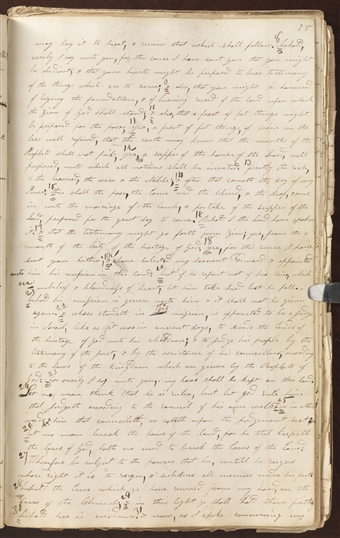 95
may lay it to heart, & receive that which shall follow. 8 behold,
verily I say unto you, for this cause I have sent you that you might
be obedient, & that your hearts might be prepared to bear testimony
of the things which are to come; 9 & also, that you might be honored
of laying the foundation, & of bearing record of the land upon which
the Zion of God shall stand; 10 & also, that a feast of fat things might
be prepared for the poor; 11 yea, a feast of fat things, of wine on the
lees well refined, that the earth may know that the mouths of the
Prophets shall not fail; 12 yea, a supper of the house of the Lord, well
prepared, unto which all nations shall be invited. 13 firstly the rich,
& the learned, the wise & the noble; 14 & after that cometh the day of my
Power. 15 then shall the poor, the lame and the blind, & the deaf, come
in unto the marriage of the Lamb, & partake of the supper of the
Lord, prepared for the great day to come. 16 behold I the Lord have spoken
it. 17 & that the testimony might go forth from Zion; yea, from the
mouth of the City of the heritage of God; 18 yea, for this cause I have
sent you hither; & have selected my servant Edward & appointed
unto him his mission in this land; 19 but if he repent not of his sins, which
are unbelief & blindness of heart, let him take heed lest he fall.
20 behold his mission is given unto him & it shall not be given
again. 21 & whoso standeth in this mission, is appointed to be a judge
in Israel, like as it was in ancient days, to divide the lands of
the heritage of God unto his children; 22 & to judge his people by the
testimony of the just, & by the assistance of his counsellors, according
to the laws of the Kingdom which are given by the Prophets of
God; 23 for verily I say unto you, my laws shall be kept on this land.
24 Let no man think that he is ruler, but let God rule him
that judgeth according to the counsel of his own will; 25 or in other
words him that counselleth, or sitteth upon the judgement seat.
26 let no man break the laws of the land, for he that keepeth
the laws of God, hath no need to break the laws of the land:
27 Wherefore be subject to the powers that be, until he reigns
whose right it is to reign, & subdues all enemies under his feet.
28 behold the laws which ye have received from my hand, are the
laws of the Church; 29 & in this light ye shall hold them forth.
30 behold here is wisdom. 31 & now, as I spoke concerning my